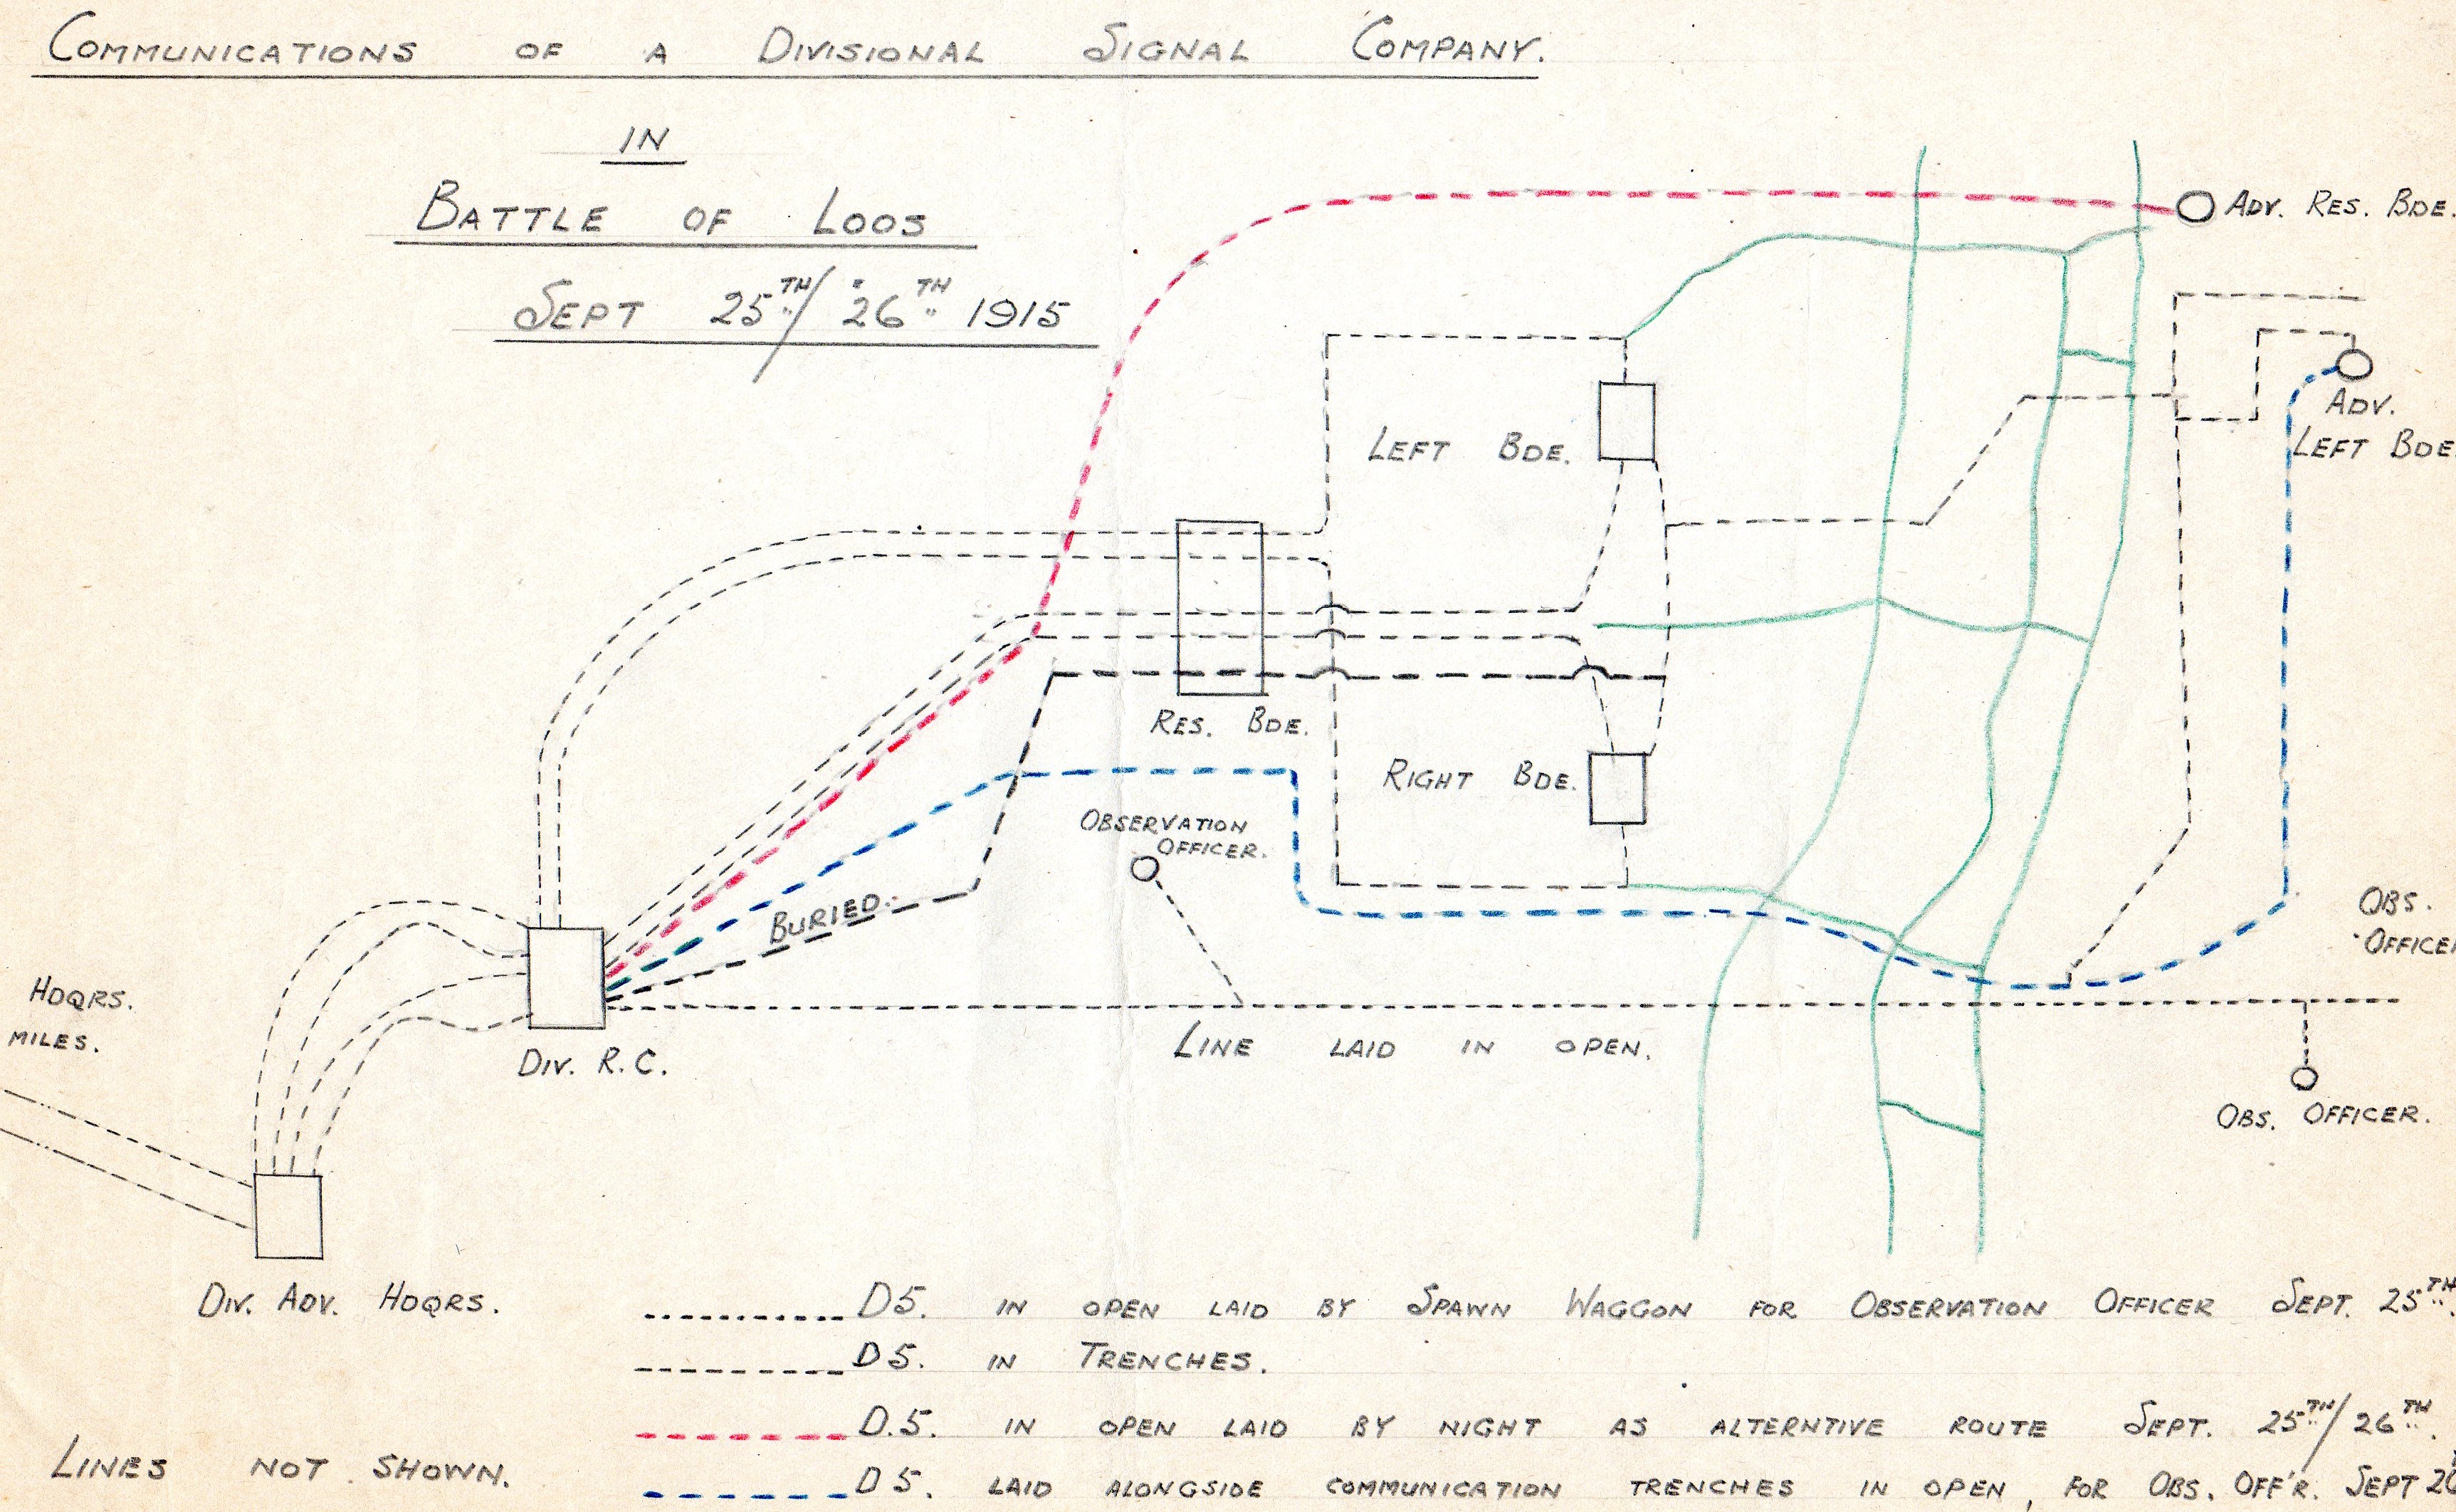 COMMUNICATIONS OF A DIVISIONAL SIGNAL COMPANY.
IN
BATTLE OF LOOS
SEPT 25TH/26TH 1915
ADV. RES. BDE.
ADV.
LEFT BDE.
LEFT BDE.
RES. BDE.
RIGHT BDE.
OBSERVATION
OFFICER.
BURIED.
OBS.
OFFICER
HDQRS.
MILES.
DIV. R.C.
LINE LAID IN OPEN.
OBS. OFFICER.
DIV. ADV. HDQRS.
D5. IN OPEN LAID BY SPAWN WAGGON FOR OBSERVATION OFFICER SEPT. 25TH.
D5. IN TRENCHES.
D.5. IN OPEN LAID BY NIGHT AS ALTERNTIVE ROUTE SEPT. 25TH/26TH.
LINES NOT SHOWN.
D5. LAID ALONGSIDE COMMUNICATION TRENCHES IN OPEN, FOR OBS. OFF'R. SEPT